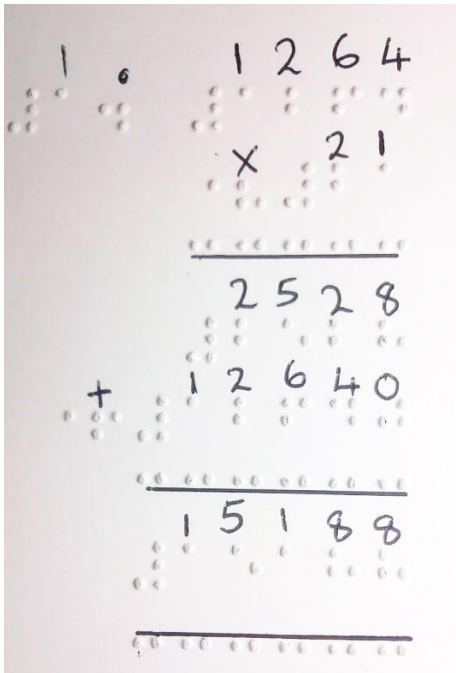 1. 1264
x 21
2528
+ 12640
15188